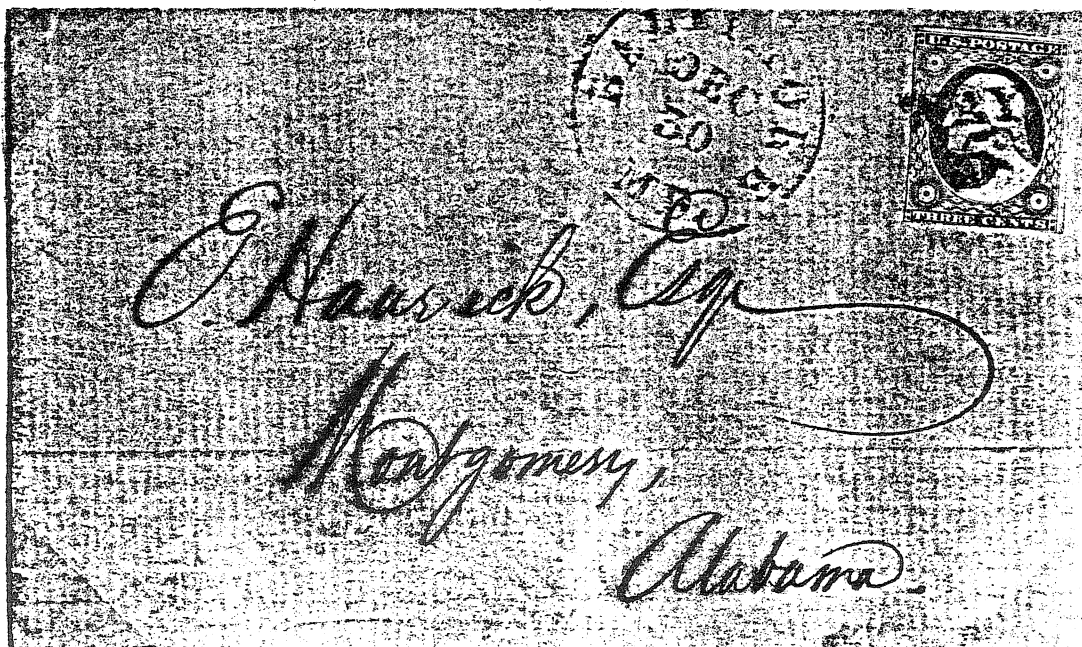 DEC
20
U.S. POSTAGE
THREE CENTS
E. Haasick, Esq
Montgomery,
Alabama.